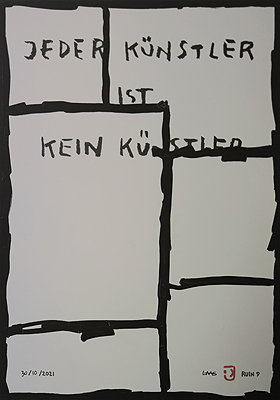 JEDER KÜNSTLER
IST
KEIN KÜNSTLER
30/10/2021 LMS RUIN 9